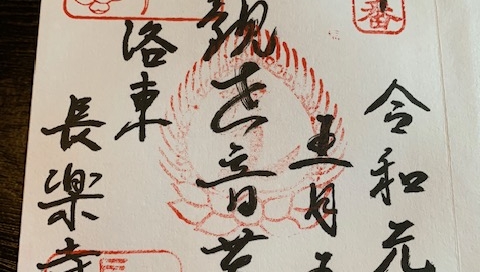 番
令和元
五月五
観世音菩
洛東
長楽寺